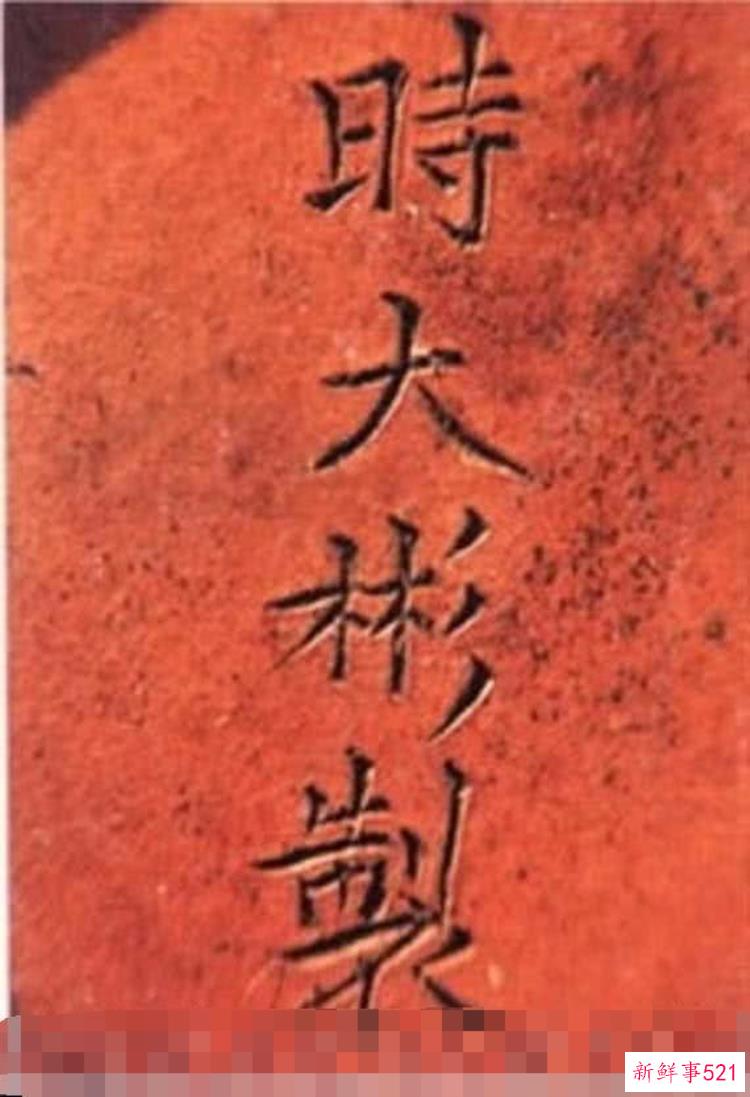 時大彬製
新鲜事521